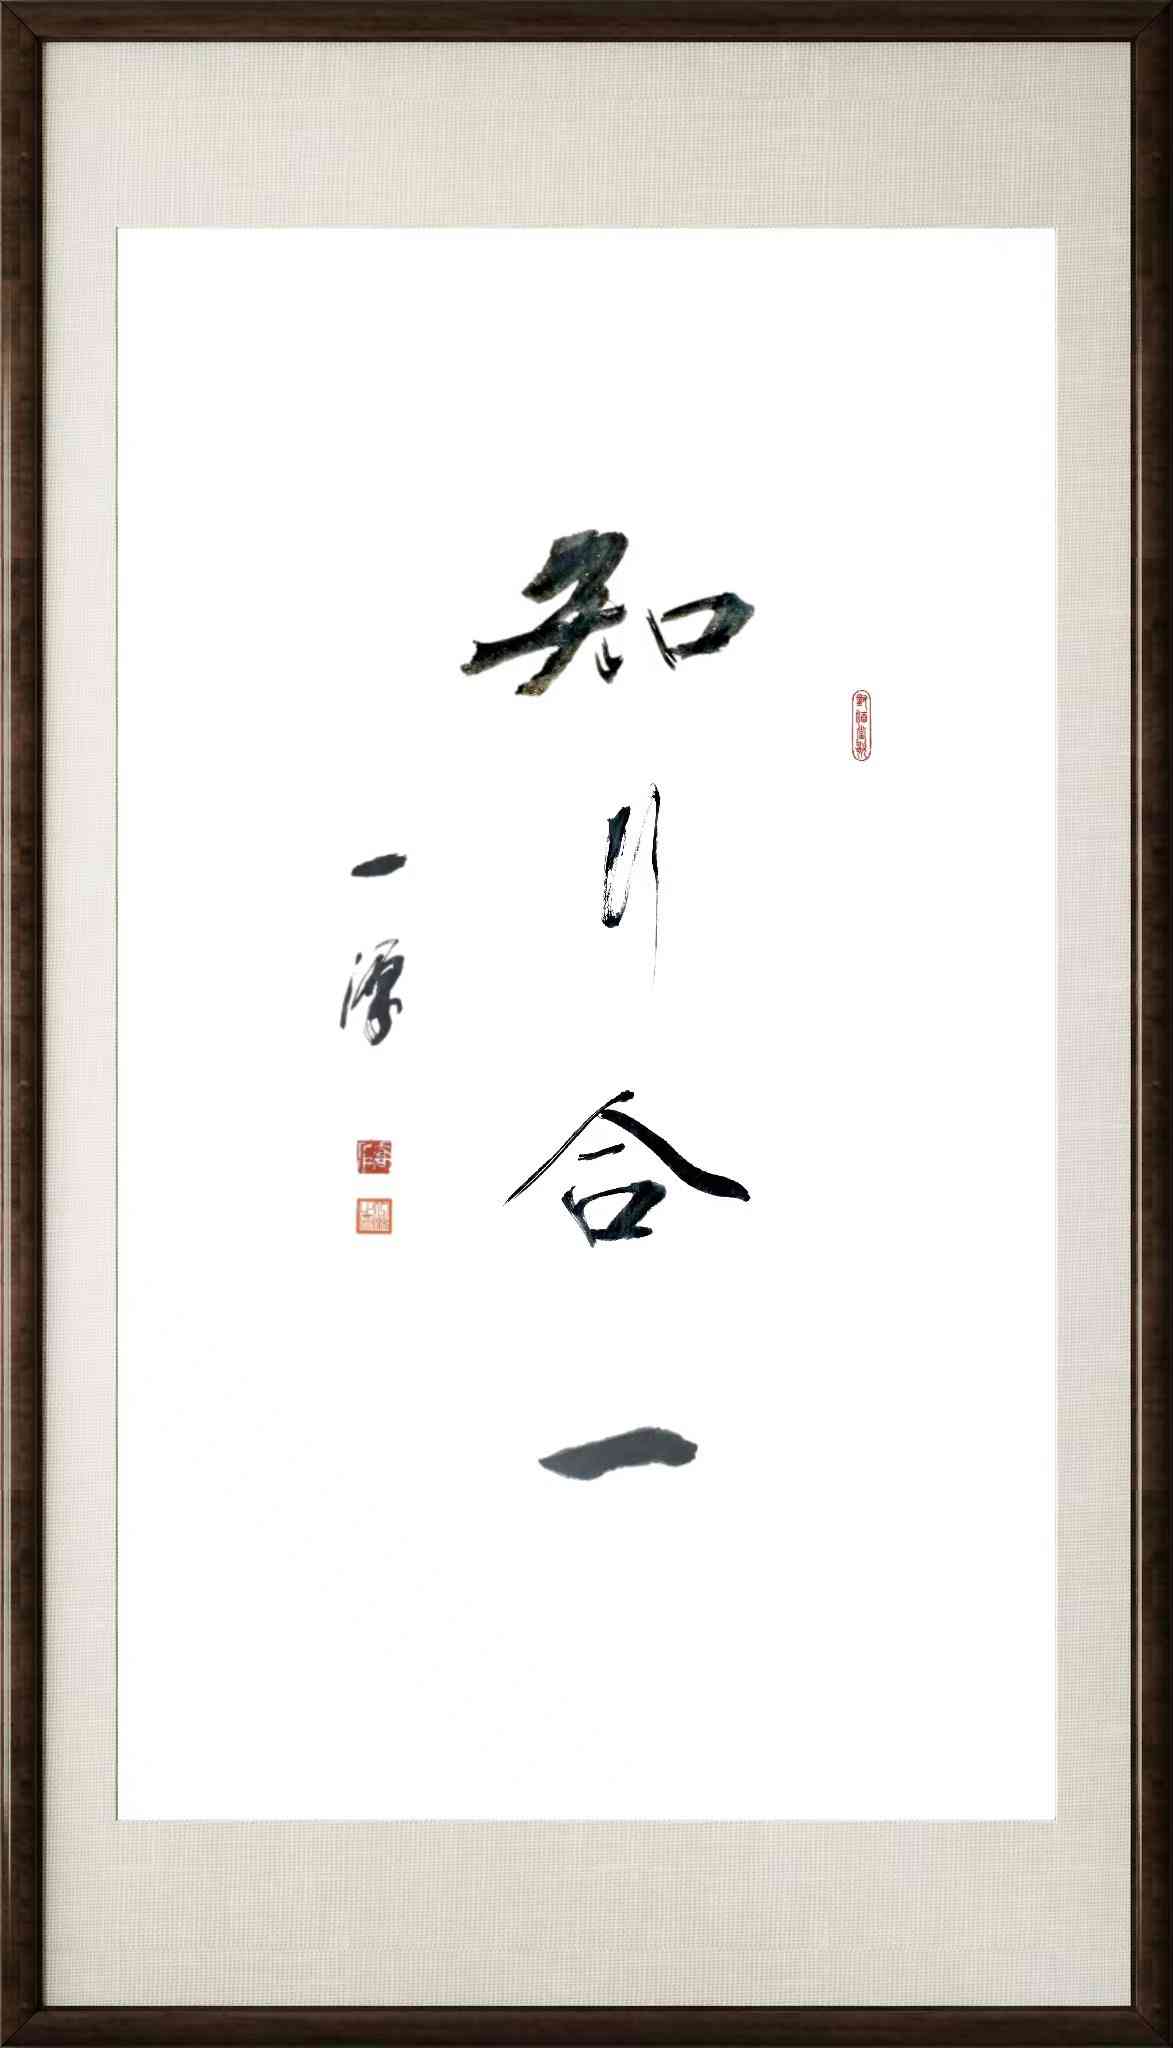 知行合一
一源